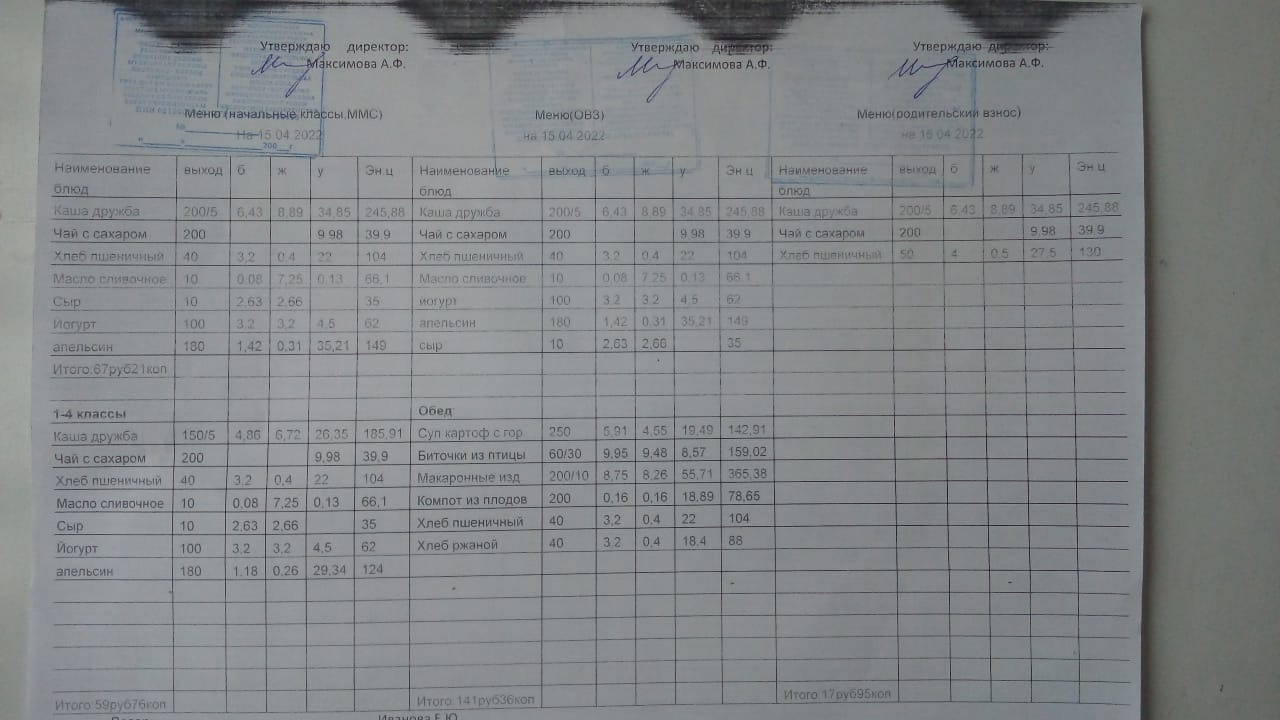 Утверждаю директор: Утверждаю директор: Утверждаю директор:
Максимова А.Ф. Максимова А.Ф. Максимова А.Ф.
Меню (начальные классы,ММС) Меню(ОВЗ) Меню(родительский взнос)
На 15 04 2022 на 15 04 2022 на 15 04 2022
200 г
Наименование блюд выход б ж у Эн ц Наименование блюд выход б ж у Эн ц Наименование блюд выход б ж у Эн ц
Каша дружба 200/5 6,43 8,89 34,85 245,88 Каша дружба 200/5 6,43 8,89 34,85 245,88 Каша дружба 200/5 6,43 8,89 34,85 245,88
Чай с сахаром 200 9,98 39,9 Чай с сахаром 200 9,98 39,9 Чай с сахаром 200 9,98 39,9
Хлеб пшеничный 40 3,2 0,4 22 104 Хлеб пшеничный 40 3,2 0,4 22 104 Хлеб пшеничный 50 4 0,5 27,5 130
Масло сливочное 10 0,08 7,25 0,13 66,1 Масло сливочное 10 0,08 7,25 0,13 66,1
Сыр 10 2,63 2,66 35 йогурт 100 3,2 3,2 4,5 62
Йогурт 100 3,2 3,2 4,5 62 апельсин 180 1,42 0,31 35,21 149
апельсин 180 1,42 0,31 35,21 149 сыр 10 2,63 2,66 35
Итого:67руб21коп
1-4 классы Обед
Каша дружба 150/5 4,86 6,72 26,35 185,91 Суп картоф с гор 250 5,91 4,55 19,49 142,91
Чай с сахаром 200 9,98 39,9 Биточки из птицы 60/30 9,95 9,48 8,57 159,02
Хлеб пшеничный 40 3,2 0,4 22 104 Макаронные изд 200/10 8,75 8,26 55,71 365,38
Масло сливочное 10 0,08 7,25 0,13 66,1 Компот из плодов 200 0,16 0,16 18,89 78,65
Сыр 10 2,63 2,66 35 Хлеб пшеничный 40 3,2 0,4 22 104
Йогурт 100 3,2 3,2 4,5 62 Хлеб ржаной 40 3,2 0,4 18,4 88
апельсин 180 1,18 0,26 29,34 124
Итого:59руб76коп Итого:141руб36коп Итого:17руб95коп
Иванова Е.Ю